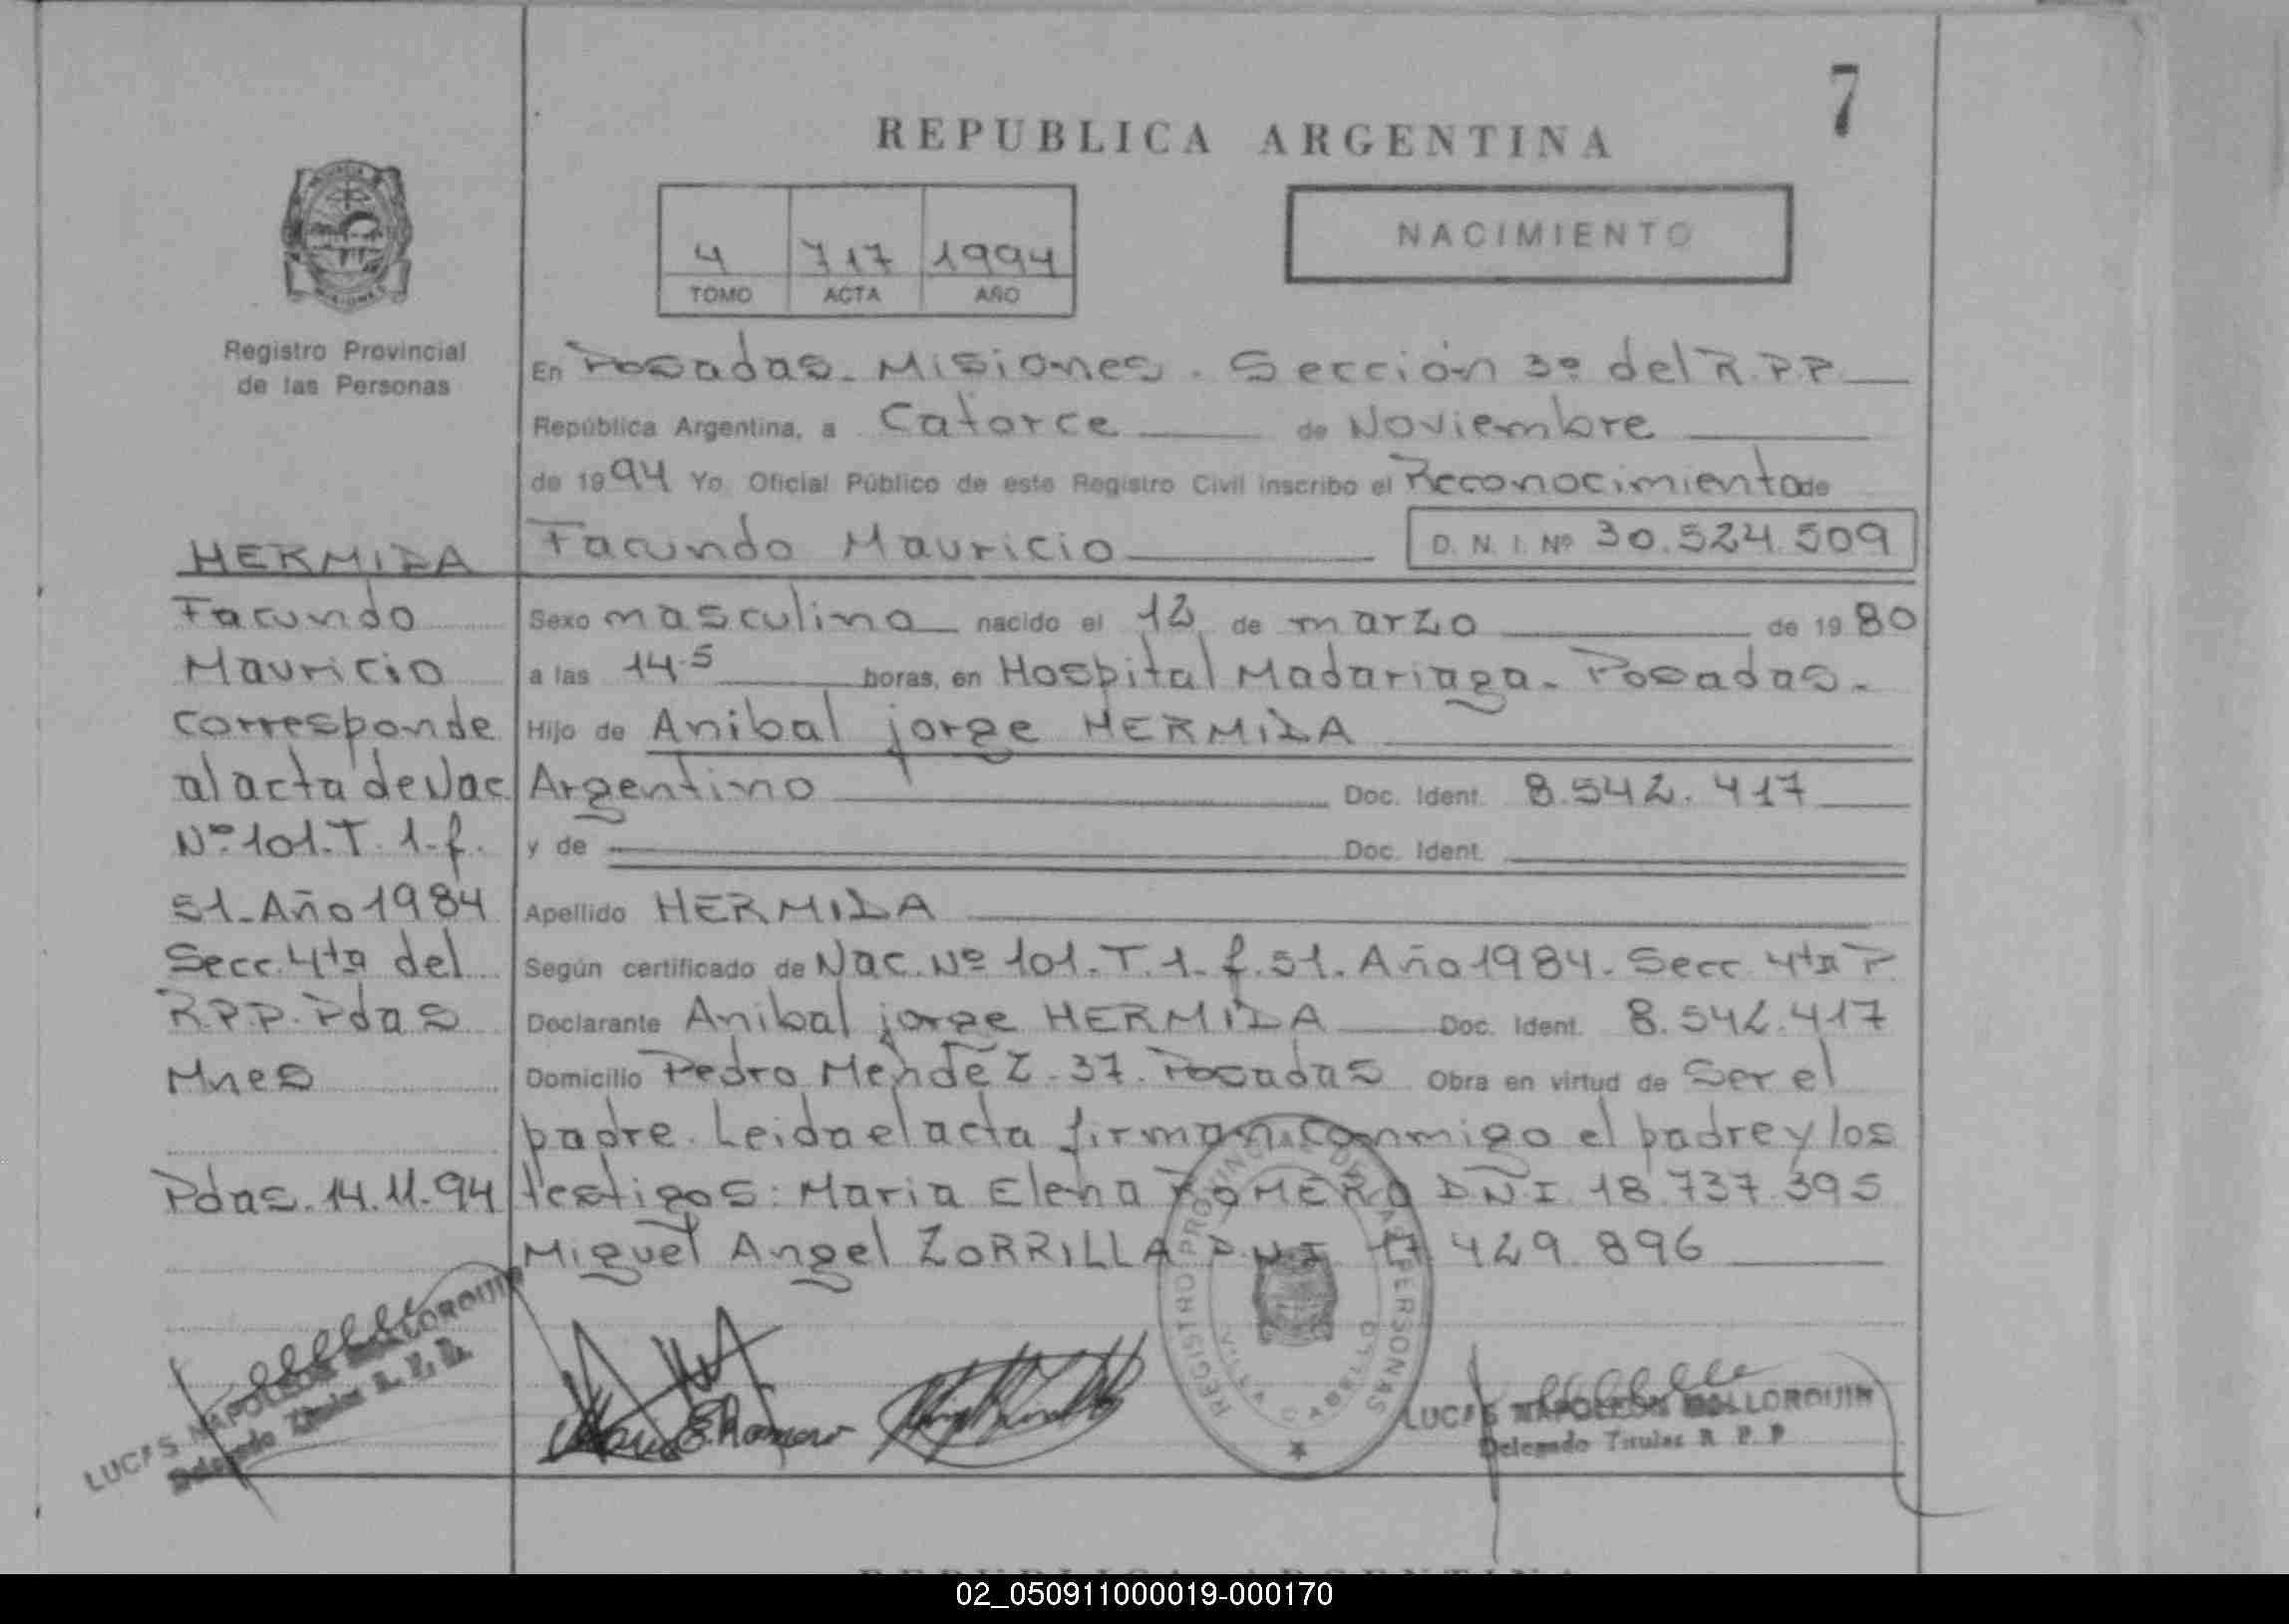 7
REPUBLICA ARGENTINA
4 717 1994
TOMO ACTA AÑO
NACIMIENTO
Registro Provincial
de las Personas
En Posadas - Misiones - Sección 3º del R.P.P.
República Argentina, a Catorce de Noviembre
de 1994 Yo Oficial Público de este Registro Civil inscribo el Reconocimiento de
Facundo Mauricio D.N.I. Nº 30.524.509
Sexo masculino nacido el 12 de marzo de 1980
a las 14.5 horas, en Hospital Madariaga - Posadas -
Hijo de Anibal jorge HERMIDA
Argentino Doc. Ident. 8.542.417
y de Doc. Ident.
Apellido HERMIDA
Según certificado de Nac. Nº 101. T. 1. f. 51. Año 1984. Secc 4ta P
Declarante Anibal jorge HERMIDA Doc. Ident. 8.542.417
Domicilio Pedro Mendez - 37. Posadas Obra en virtud de Ser el
padre. Leida el acta firman conmigo el padre y los
testigos: Maria Elena ROMERO DNI 18.737.395
Miguel Angel ZORRILLA D.N.I. 17 429.896
HERMIDA
Facundo
Mauricio
Corresponde
al acta de Nac
Nº 101. T. 1 - f.
51 - Año 1984
Secc. 4ta del
R.P.P. Pdas
Mnes
Pdas. 14.11.94
LUCAS NAPOLEON MALLORQUIN
Delegado Titular R. P. P.
Maria E. Romero
REGISTRO PROVINCIAL DE LAS PERSONAS
VILLA CABELLO
LUCAS NAPOLEON MALLORQUIN
Delegado Titular R. P. P
REPUBLICA ARGENTINA
02_050911000019-000170